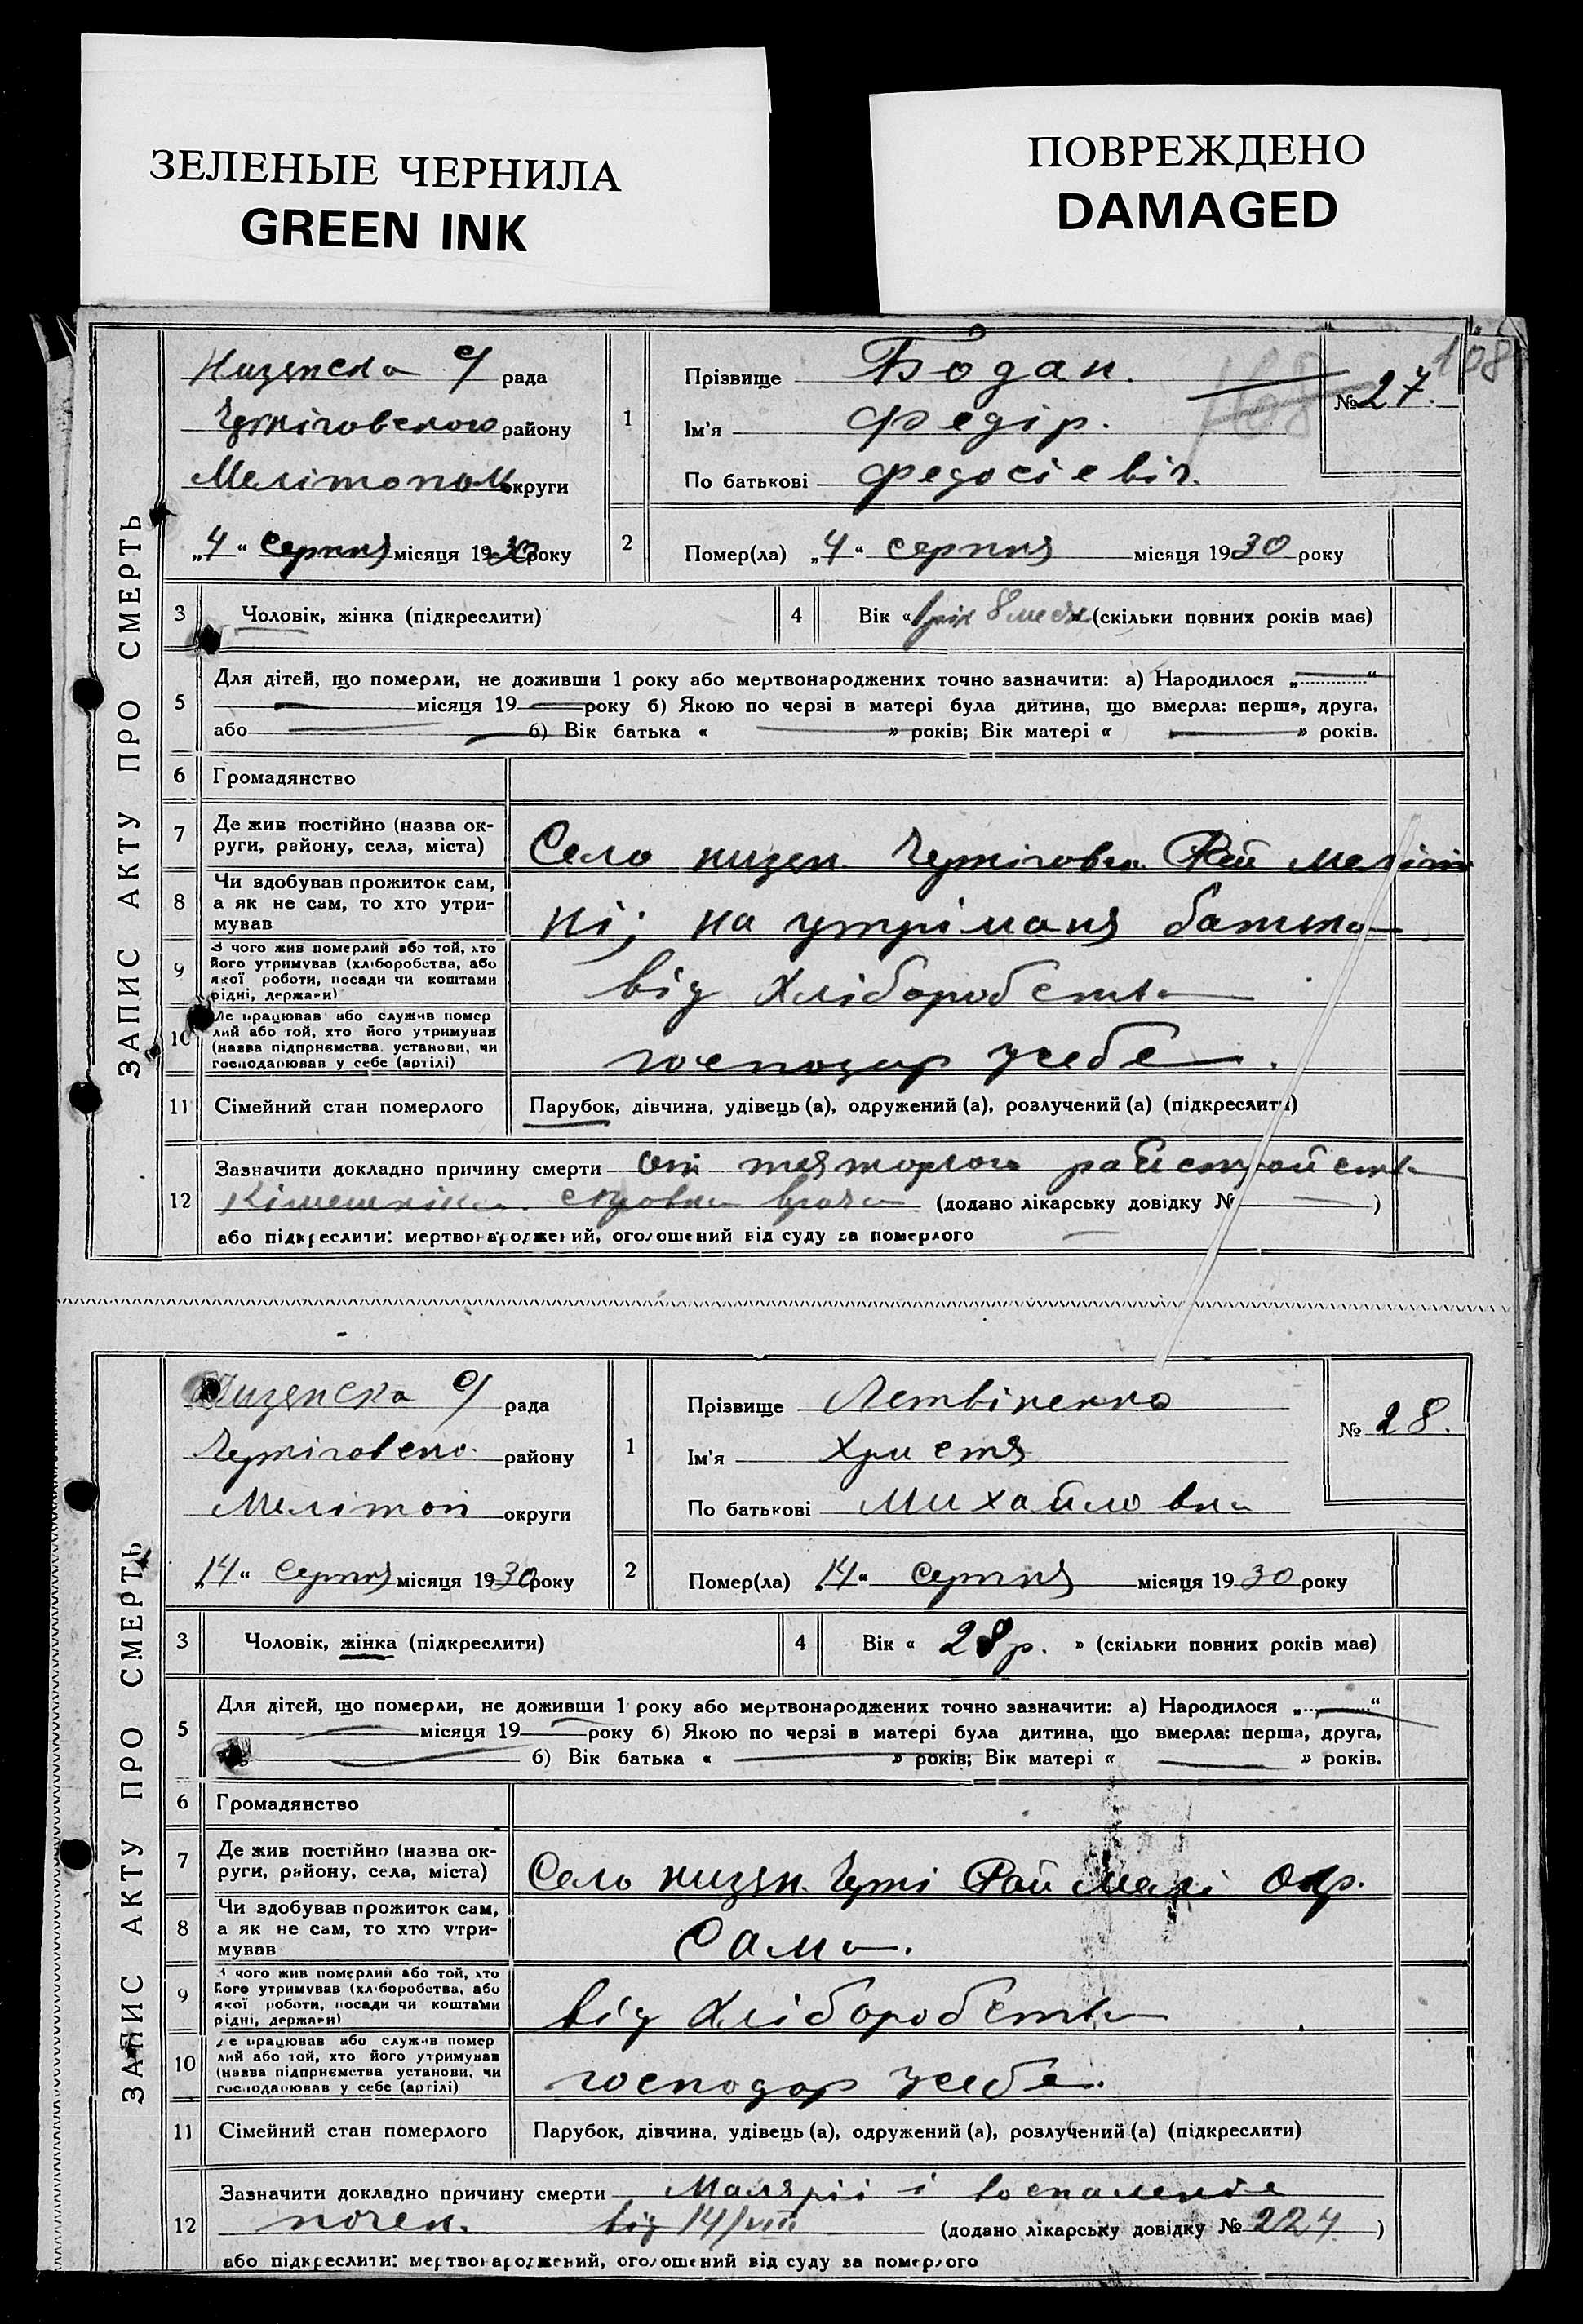 ЗЕЛЕНЫЕ ЧЕРНИЛА
GREEN INK
ПОВРЕЖДЕНО
DAMAGED
108
ЗАПИС АКТУ ПРО СМЕРТЬ
Низянска с/ рада
Черніговського району
Мелітопол округи
„4“ серпня місяця 1930 року
1
Прізвище Бодан.
Ім'я Федір.
По батькові Федосієвіч.
№ 27.
2
Помер(ла) „4“ серпня місяця 1930 року
3 Чоловік, жінка (підкреслити)
4 Вік « 1 рік 8 меся (скільки повних років має)
5 Для дітей, що померли, не доживши 1 року або мертвонароджених точно зазначити: а) Народилося „ “
місяця 19 року б) Якою по черзі в матері була дитина, що вмерла: перша, друга,
або б) Вік батька « » років; Вік матері « » років.
6 Громадянство
7 Де жив постійно (назва округи, району, села, міста)
Село низян. Черніговск. Рай Меліт
8 Чи здобував прожиток сам, а як не сам, то хто утримував
ні; на утріманя батька
9 З чого жив померлий або той, хто його утримував (хліборобства, або якої роботи, посади чи коштами рідні, держави)
від Хліборобства
10 Де працював або служив померлий або той, хто його утримував (назва підприємства, установи, чи господарював у себе (артілі)
господар усебе.
11 Сімейний стан померлого
Парубок, дівчина, удівець (а), одружений (а), розлучений (а) (підкреслити)
12 Зазначити докладно причину смерти от
(додано лікарську довідку № )
або підкреслити: мертвонароджений, оголошений від суду за померлого
ЗАПИС АКТУ ПРО СМЕРТЬ
Низянска с/ рада
Черніговско. району
Мелітоп округи
„14“ Серпня місяця 1930 року
1
Прізвище Летвіненко
Ім'я Христя
По батькові Михайловна
№ 28.
2
Помер(ла) „14“ серпня місяця 1930 року
3 Чоловік, жінка (підкреслити)
4 Вік « 28 р. » (скільки повних років має)
5 Для дітей, що померли, не доживши 1 року або мертвонароджених точно зазначити: а) Народилося „ “
місяця 19 року б) Якою по черзі в матері була дитина, що вмерла: перша, друга,
б) Вік батька « » років; Вік матері « » років.
6 Громадянство
7 Де жив постійно (назва округи, району, села, міста)
Село низян. Черні Рай Мелі Окр.
8 Чи здобував прожиток сам, а як не сам, то хто утримував
Сама.
9 З чого жив померлий або той, хто його утримував (хліборобства, або якої роботи, посади чи коштами рідні, держави)
від Хліборобства
10 Де працював або служив померлий або той, хто його утримував (назва підприємства установи, чи господарював у себе (артілі)
господар усебе.
11 Сімейний стан померлого
Парубок, дівчина, удівець (а), одружений (а), розлучений (а) (підкреслити)
12 Зазначити докладно причину смерти Малярії і воспаленіе
почек. від 14/VIII (додано лікарську довідку № 224 )
або підкреслити: мертвонароджений, оголошений від суду за померлого